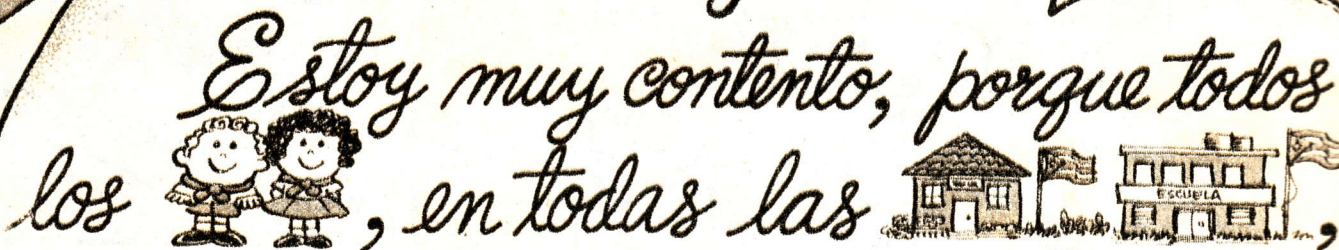 Estoy muy contento, porque todos
los , en todas las ESCUELA ,